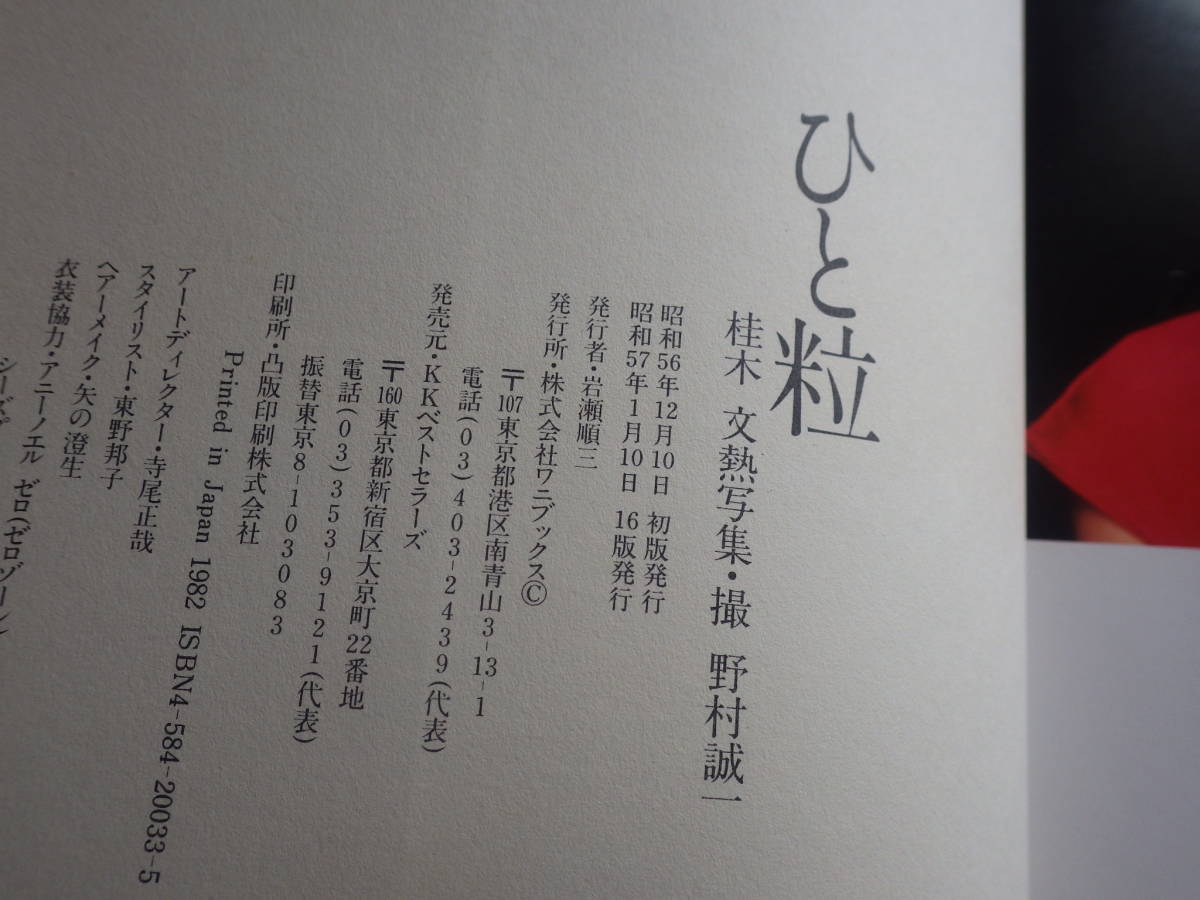 ひと粒
桂木 文熱写集・撮 野村誠一
昭和56年12月10日 初版発行
昭和57年1月10日 16版発行
発行者・岩瀬順三
発行所・株式会社ワニブックス©
〒107東京都港区南青山3-13-1
電話(03)403-2439(代表)
発売元・KKベストセラーズ
〒160東京都新宿区大京町22番地
電話(03)353-9121(代表)
振替東京8-103083
印刷所・凸版印刷株式会社
Printed in Japan 1982 ISBN4-584-20033-5
アートディレクター・寺尾正哉
スタイリスト・東野邦子
ヘアーメイク・矢の澄生
衣装協力・アニーノエル ゼロ(ゼロゾーン)